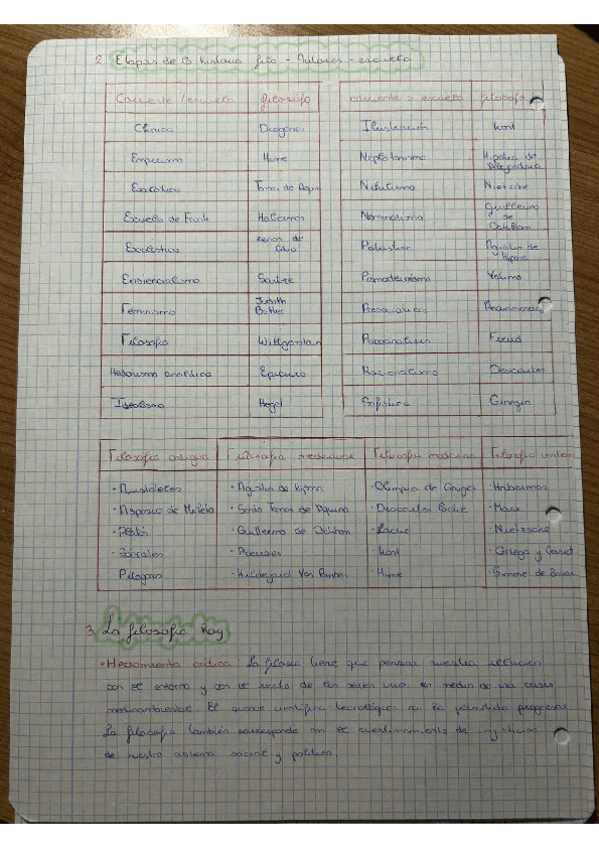 2. Etapas de la historia filo - Autores - escuela
Corriente / escuela filósofo
Cínica Diogenes
Empirismo Hume
Escolástica Tomas de Aquin
Escuela de Frank Habermas
Zenon de
Citio
Existencialismo Sartre
Feminismo Judith
Butler
Filosofia Wittgenstein
Hedonismo Epicuro
Idealismo Hegel
corriente y escuela filosofo
Ilustración kant
Neoplatonismo Hipatia de
Alegandria
Nihilismo Nietzche
Nominalismo Guillermo
de
Ockham
Agustin de
Hipona
Posmodernismo Vatimo
Presocratico
Psicoanalisis Freud
Racionalismo Descartes
Sofistica Gorgias
Filosofia antigua Filosofia medieval Filosofia moderna Filosofia
· Aristoteles · Agustin de Hipona · Olimpia de Gouges · Habermas
· Aspasia de Mileto · Santo Tomas de Aquino · Descartes · Marx
· Platón · Guillermo de Ockham · Locke · Nietzsche
· Socrates · kant · Ortega y Gasset
Pitagoras · Hildegard Von Bingen · Hume · Simone de Beau
3. La filosofia hoy
· Herramienta critica: La filosia tiene que pensar nuestra relación
con el entorno y con el resto de los seres vivos en medio de una crisis
medioambiental. El avance cientifico tecnológico progresar
La filosofia también corresponde con el cuestionamiento de injusticias
de nuestro sistema social y politico.